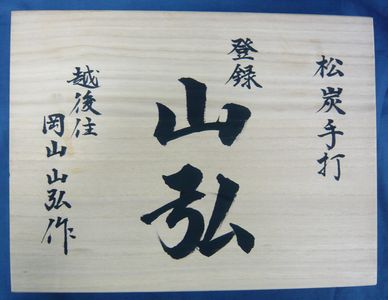 松炭手打
登録
山弘
越後住
岡山山弘作